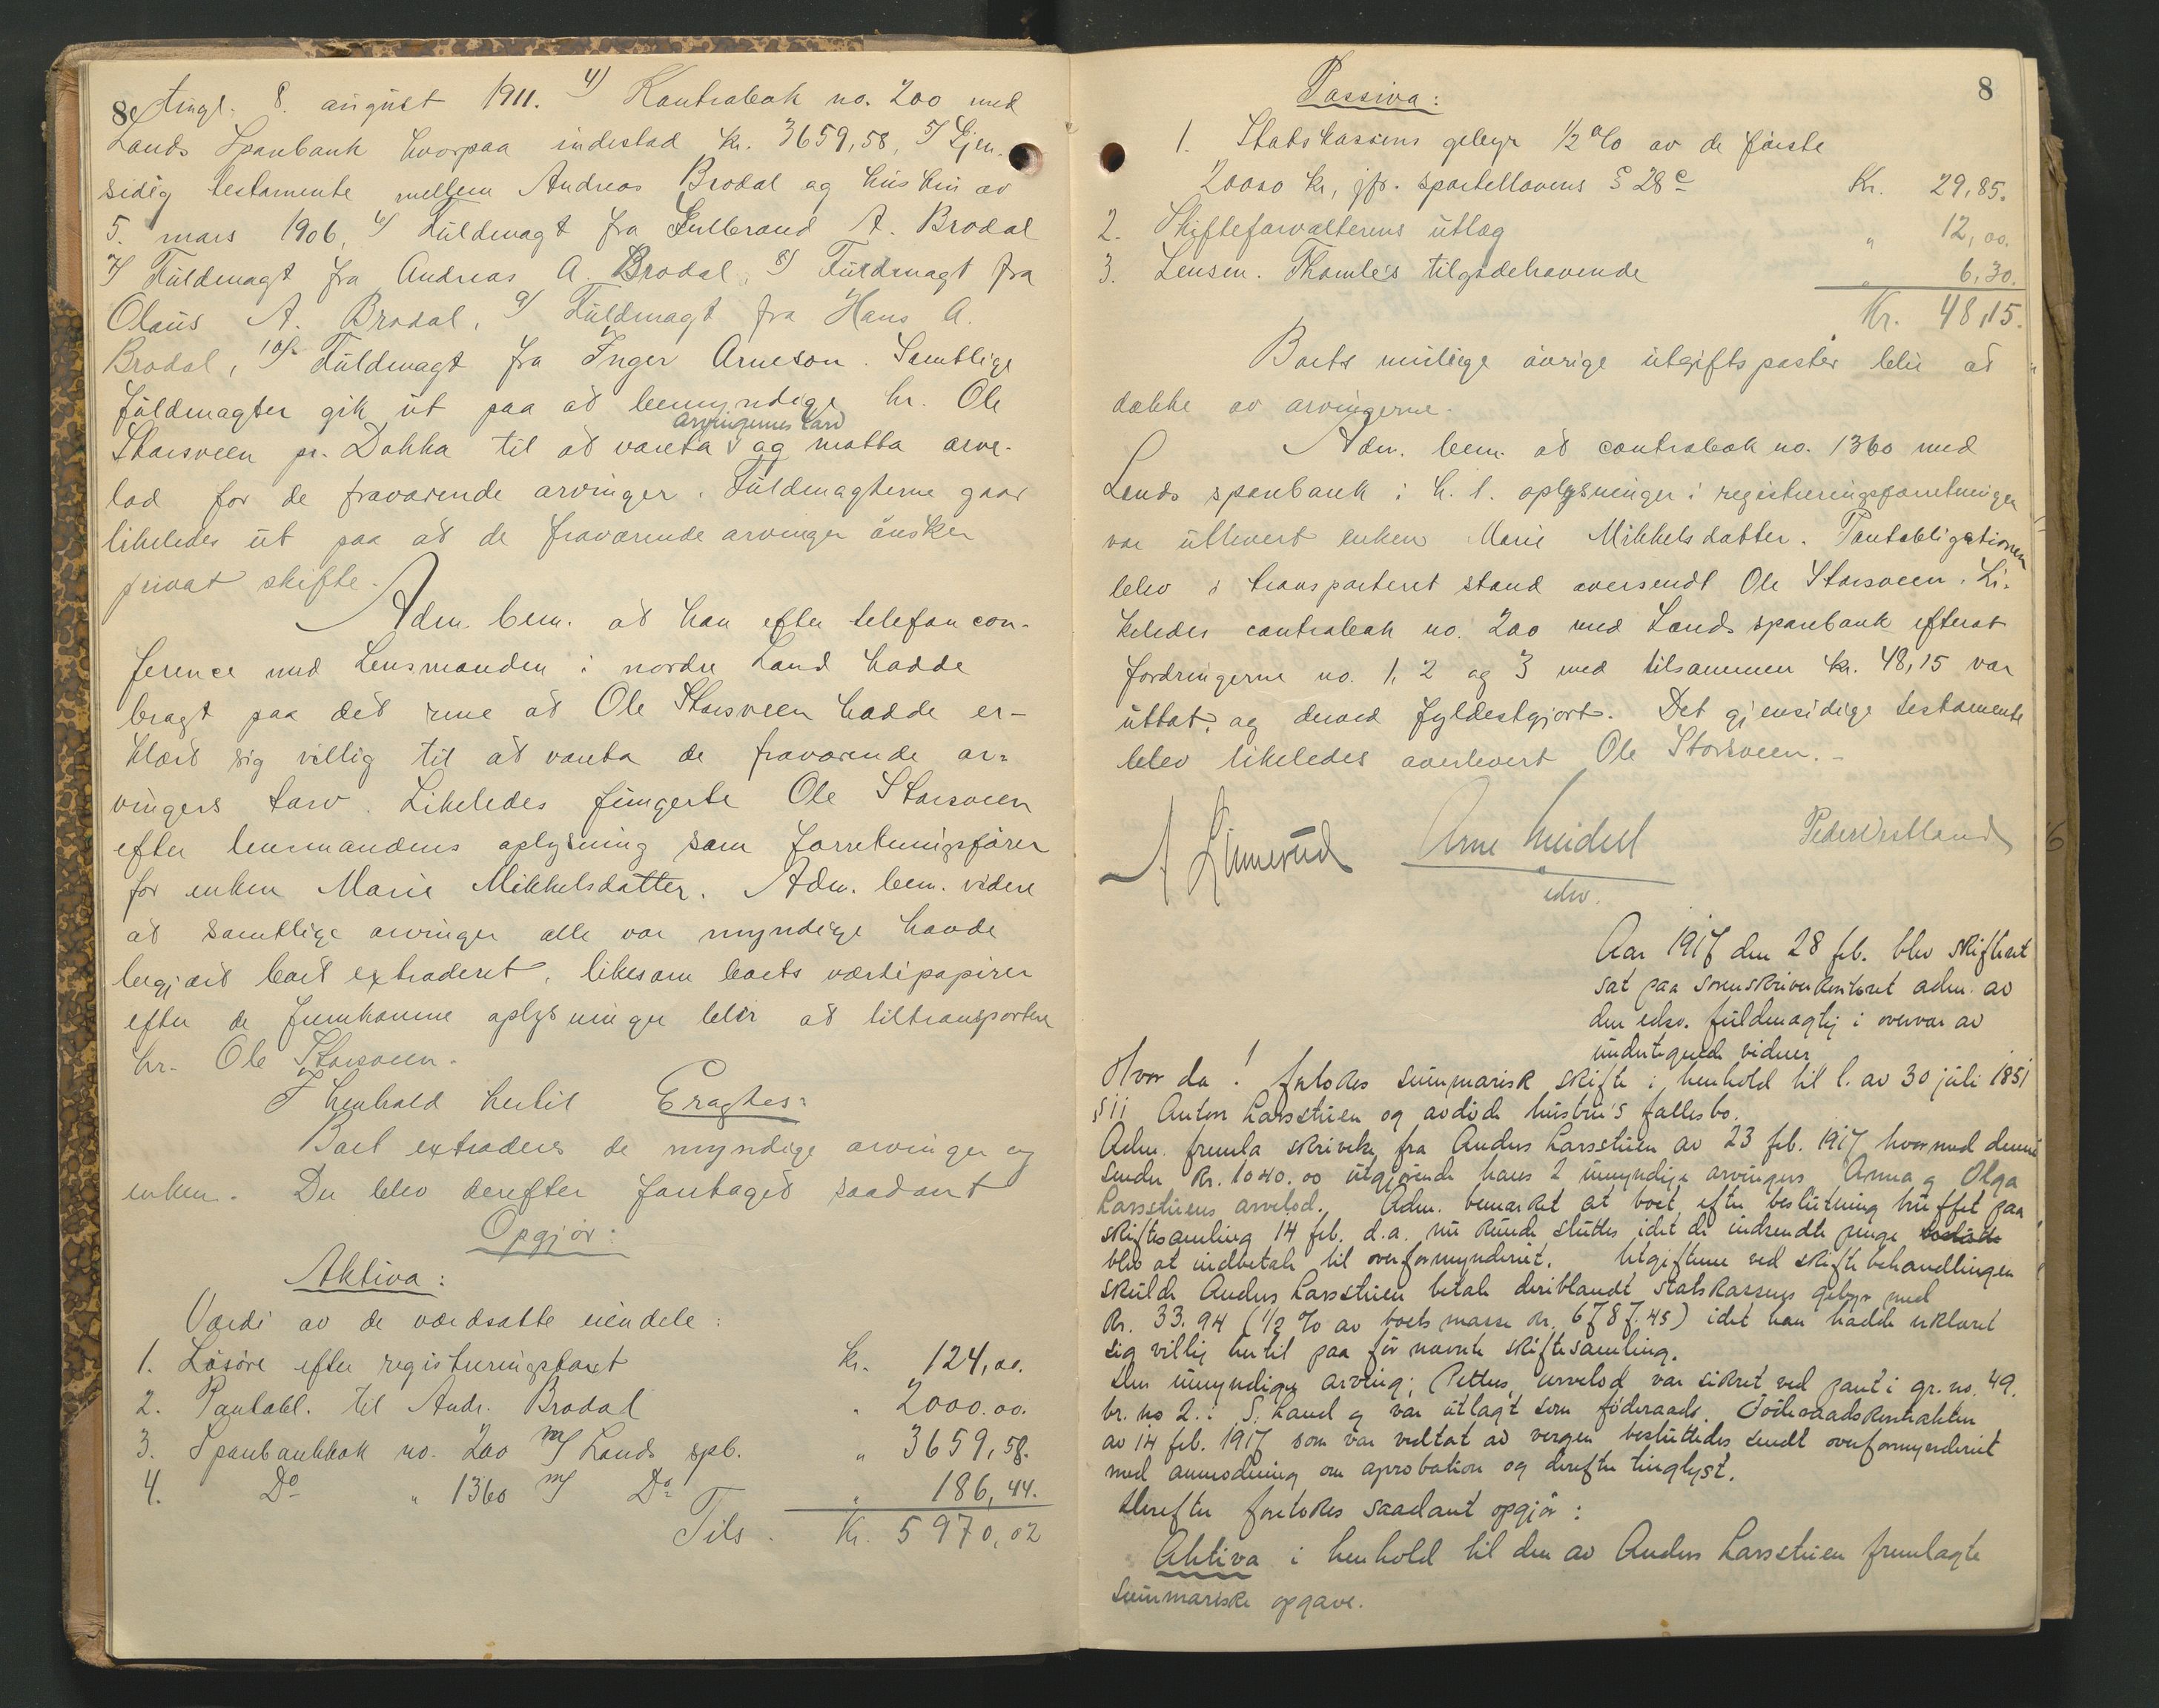 8
tingl. 8. august 1911. 4) Kontrabok no. 200 med
Lands Sparebank hvorpaa indestod kr. 3659,58, 5) Gjen-
sidig testamente mellem Andreas Brodal og hustru av
5. mars 1906, 6) Fuldmagt fra Gulbrand A. Brodal
7) Fuldmagt fra Andreas A. Brodal, 8) Fuldmagt fra
Olaus A. Brodal, 9) Fuldmagt fra Hans A.
Brodal, 10) Fuldmagt fra Inger Arneson. Samtlige
fuldmagter gik ut paa at bemyndige hr. Ole
arvingernes tarv
Storsveen pr. Dokka til at vareta og motta arve-
lod for de fraværende arvinger. Fuldmagterne gaar
likeledes ut paa at de fraværende arvinger ønsker
privat skifte.
Adm. bem. at han efter telefon con-
ference med Lensmanden i nordre Land hadde
bragt paa det rene at Ole Storsveen hadde er-
klært sig villig til at vareta de fraværende ar-
vingers tarv. Likeledes fungerte Ole Storsveen
efter lensmandens oplysning som forretningsfører
for enken Marie Mikkelsdatter. Adm. bem. videre
at samtlige arvinger alle var myndige havde
begjært boet extraderet, likesom boets værdipapirer
efter de fremkomne oplysninger blir at tiltransportere
hr. Ole Storsveen.
I henhold hertil Eragtes:
Boet extraderes de myndige arvinger og
enken. Der blev derefter foretaget saadant
Opgjør:
Aktiva:
Værdi av de værdsatte eiendele:
1. Løsøre efter registreringstaxt kr. 124,00.
2. Pantobl. til Andr. Brodal " 2000.00.
3. Sparebankbok no. 200 m/ Lands spb. " 3659,58.
4. Do " 1360 m/ Do " 186,44.
Tils. Kr. 5970,02
8
Passiva:
1. Statskassens gebyr 1/2 % av de første
20000 kr, jfr. sportellovens § 28 c Kr. 29,85.
2. Skifteforvalterens utlæg " 12,00.
3. Lensm. Thomle's tilgodehavende " 6,30.
Kr. 48,15.
Boets mulige øvrige utgiftsposter blir at
dække av arvingerne.
Adm. bem. at contrabok no. 1360 med
Lands sparebank i h. t. oplysninger i registreringsforretningen
var utlevert enken Marie Mikkelsdatter. Pantobligationen
blev i transporteret stand oversendt Ole Storsveen. Li-
keledes contrabok no. 200 med Lands sparebank efterat
fordringerne no. 1, 2 og 3 med tilsammen kr. 48,15 var
uttat, og derved fyldestgjort. Det gjensidige testamente
blev likeledes overlevert Ole Storsveen.
A Linnerud Arne Meidell Peder Vestland
edsv.
Aar 1917 den 28 feb. blev skifteret
sat paa sorenskriverkontoret adm. av
den edsv. fuldmægtig i overvær av
undertegnede vidner
Hvor da! foretokes summarisk skifte i henhold til l. av 30 juli 1851
§ 11 Anders Larsstuen og avdøde hustru's fællesbo.
Adm. fremla skrivelse fra Anders Larsstuen av 23 feb. 1917 hvormed denne
sender kr. 1040.00 utgjørende hans 2 umyndige arvingers Anna og Olga
Larsstuens arvelod. Adm. bemærket at boet efter beslutning truffet paa
skiftesamling 14 feb. d.a. nu kunde sluttes idet de indsendte penge
blev at indbetale til overformynderiet. Utgifterne ved skiftebehandlingen
skulde Anders Larsstuen betale deriblandt statskassens gebyr med
kr. 33.94 (1/2 % av boets masse kr. 6787.45) idet han hadde erklæret
sig villig hertil paa før nævnte skiftesamling.
Den umyndige arving; Petters arvelod var sikret ved pant i gr. no. 49.
br. no 2. i S. Land og var utlagt som føderaad. Føderaadskontrakten
av 14 feb. 1917 som var vedtat av vergen besluttedes sendt overformynderiet
med anmodning om aprobation og derefter tinglyst.
Derefter foretokes saadant opgjør:
Aktiva i henhold til den av Anders Larsstuen fremlagte
summariske opgave.